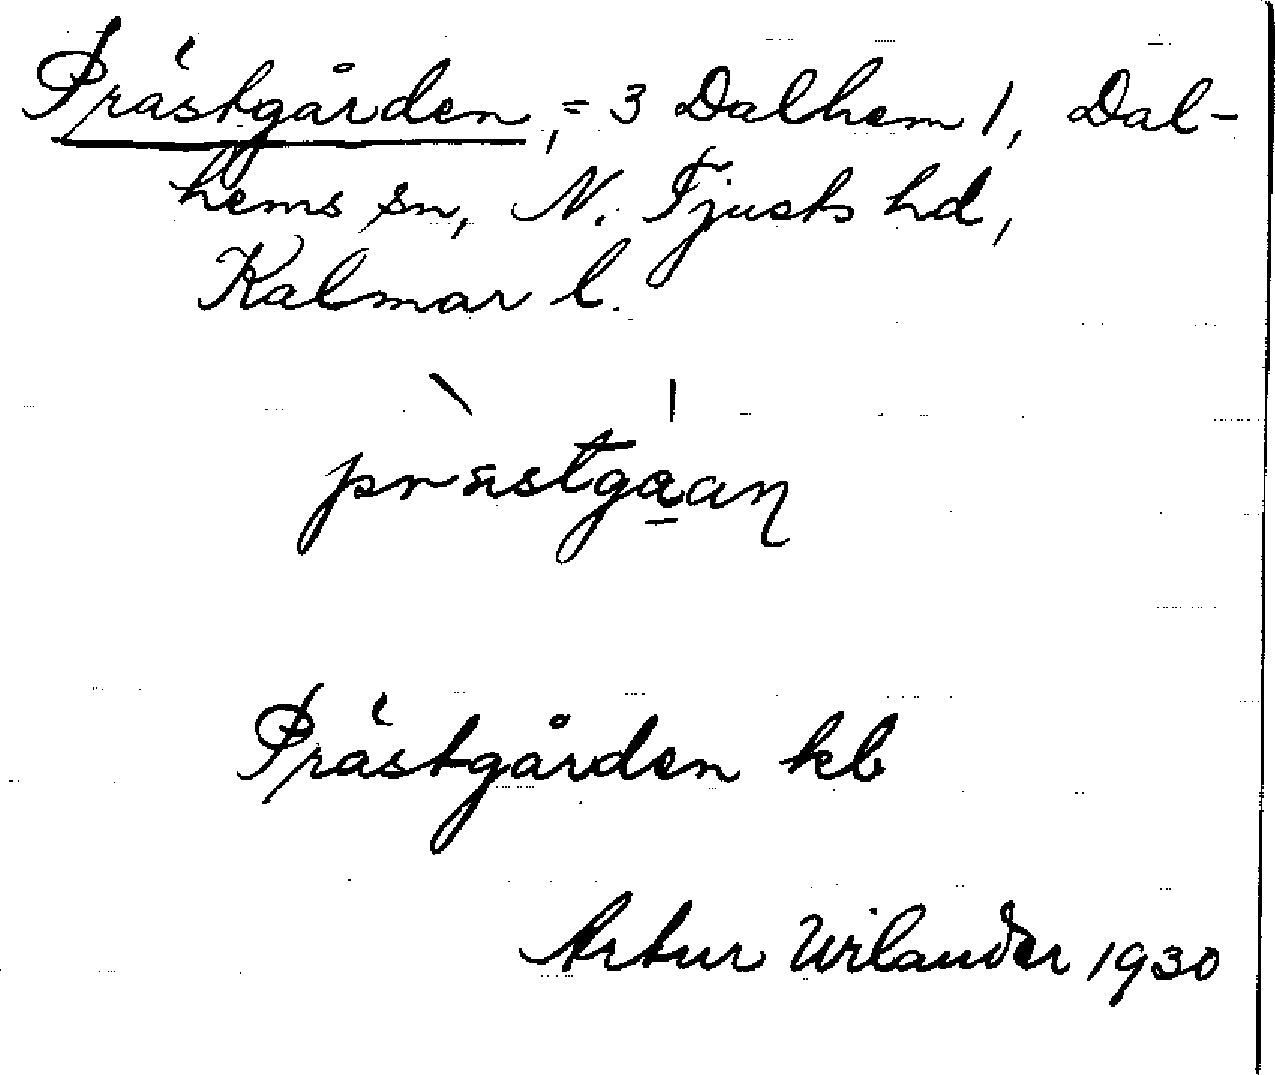 Prästgården, = 3 Dalhem 1, Dal-
hems sn, N. Tjusts hd,
Kalmar l.
prästga̱an
Prästgården kb
Artur Wilander 1930